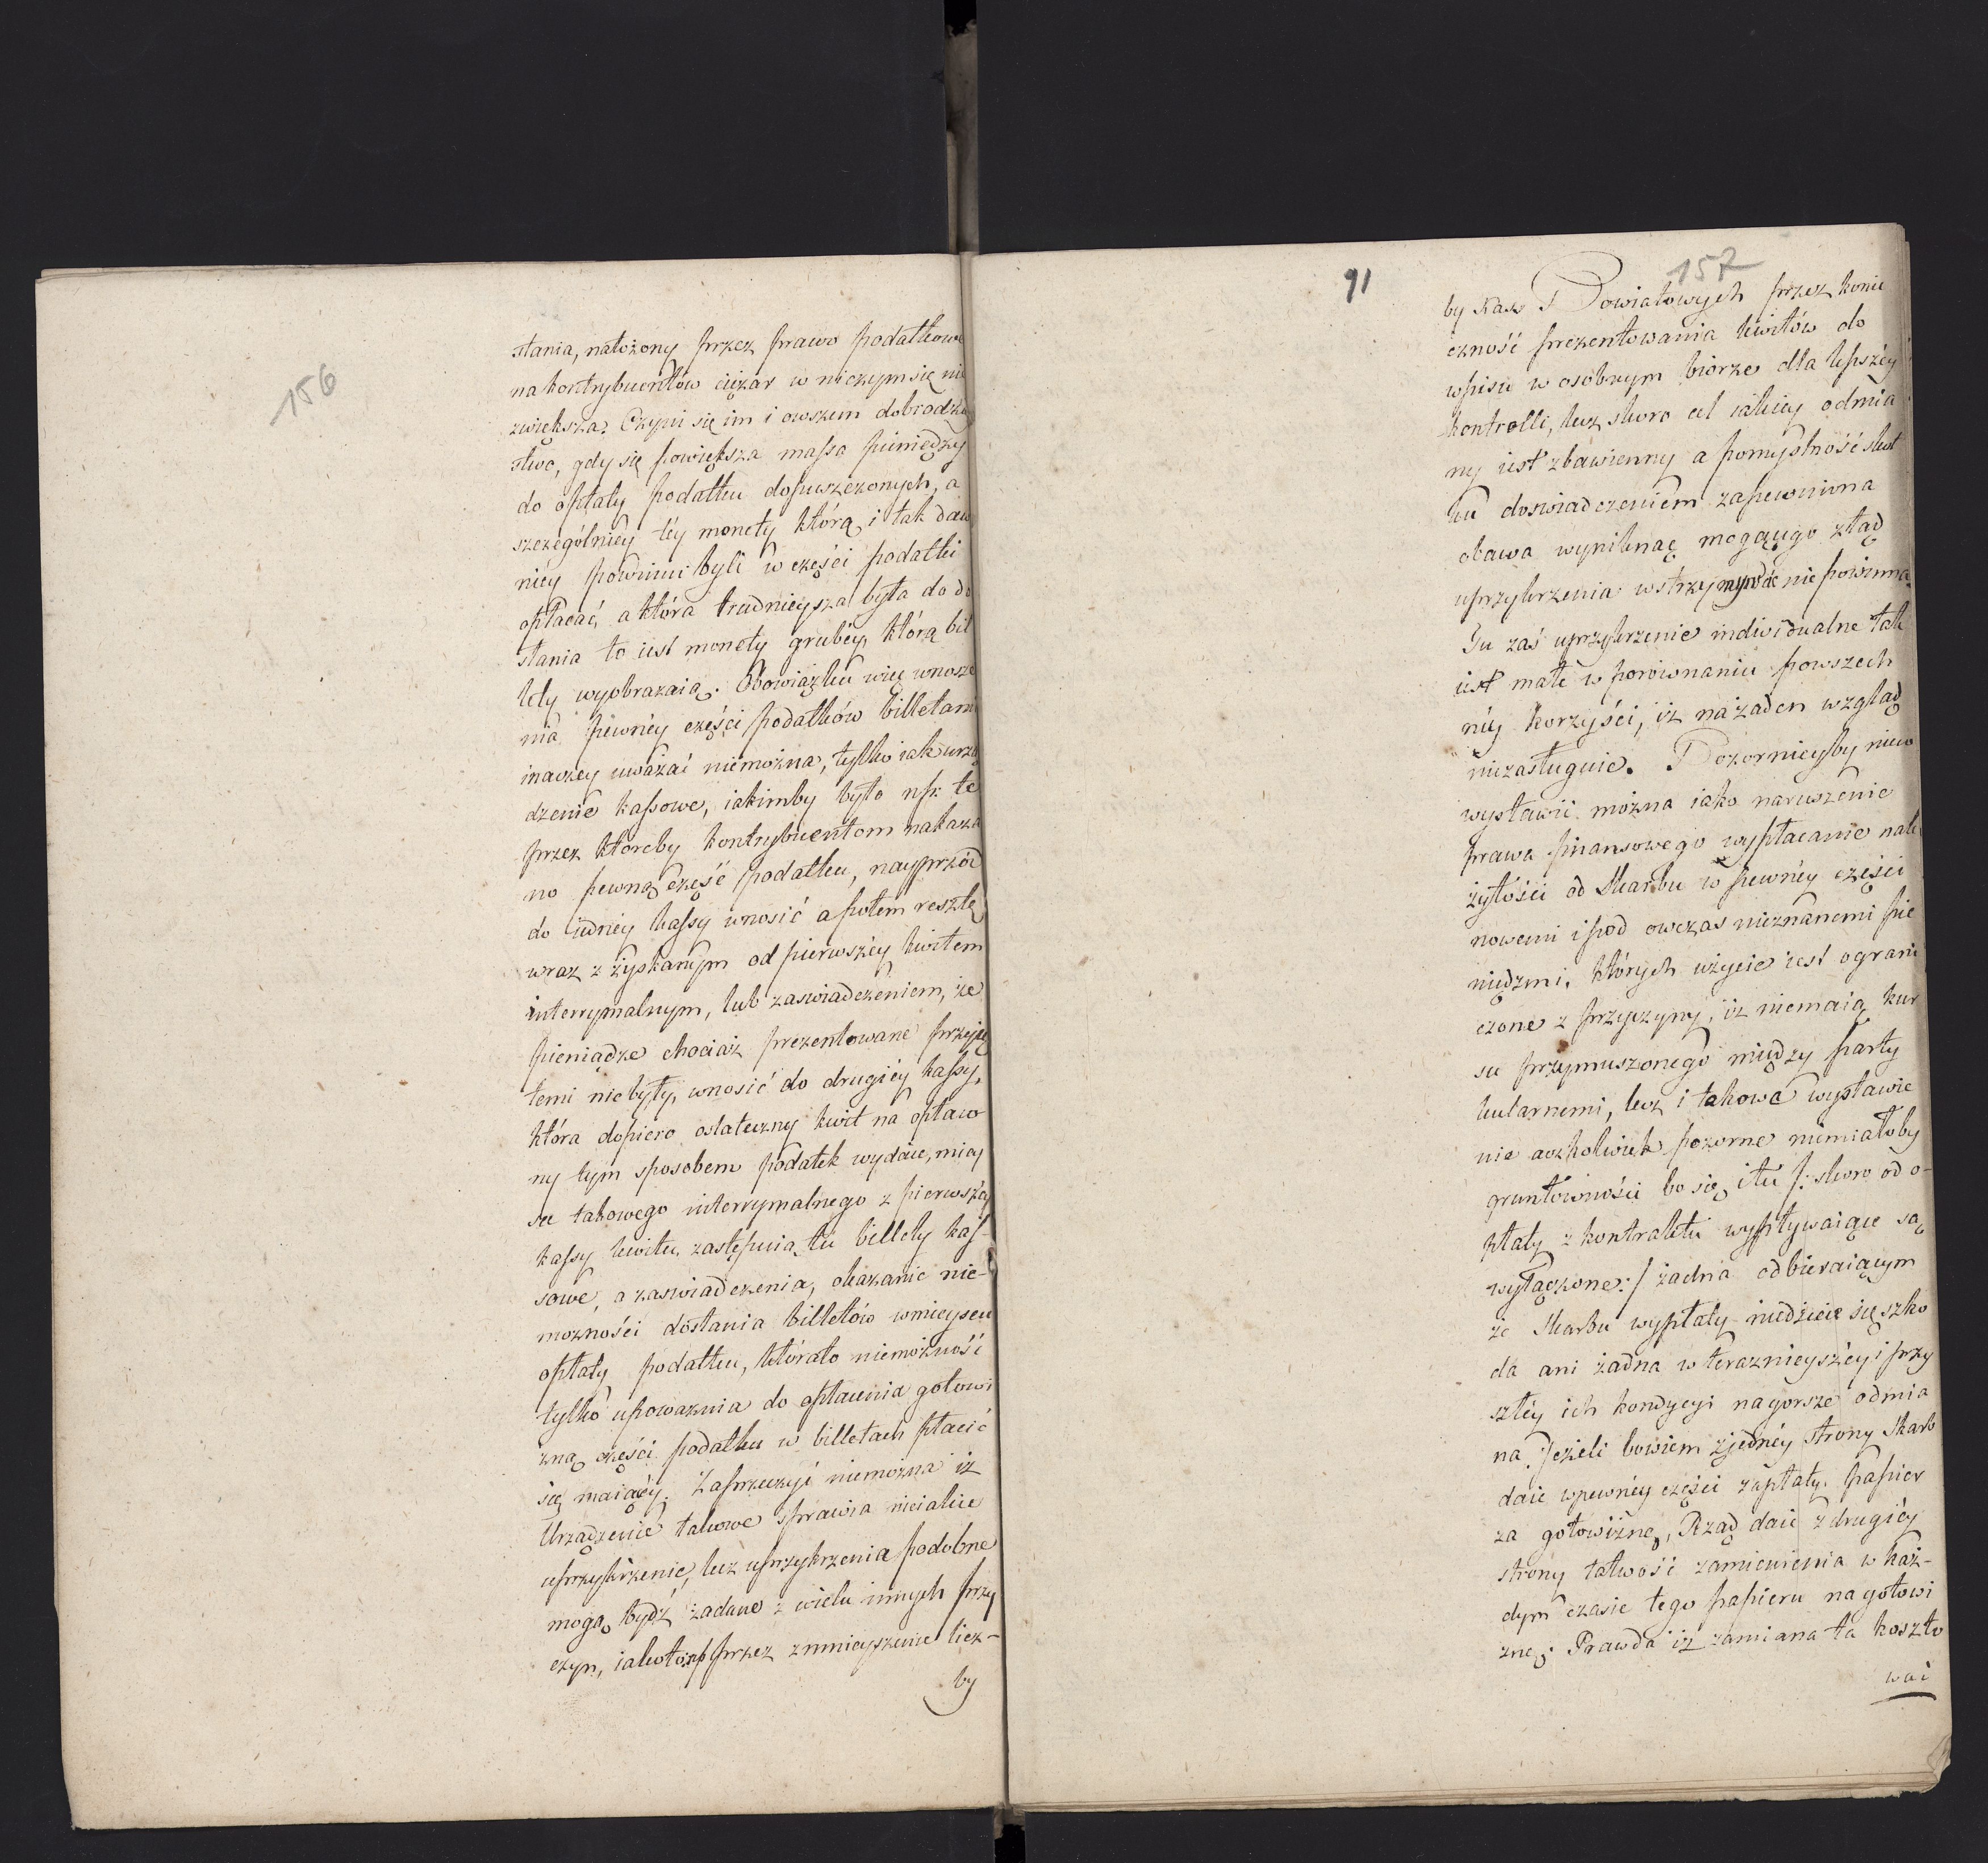 156
stania, nałożony przez prawo podatkowe
na kontrybuentów ciężar w niczym się nie
zwiększa. Czyni się im i owszem dobrodziey
stwo, gdy się powiększa massa pieniędzy
do opłaty podatku dopuszczonych, a
szczególniey téy monety którą i tak daw
niéy powinni byli w części podatki
opłacać, a która trudnieysza była do do
stania to iest monety grubéy, którą bil
lety wyobrażaią. Obowiązku więc wnosze
nia pewnéy części podatków billetami
inaczey uważać niemożna, tylko iak urzą
dzenie kassowe, iakimby było np. te
przez któreby kontrybuentom nakaza
no pewną część podatku, nayprzód
do iedney kassy wnosić a potem resztę
wraz z zyskanym od pierwszéy kwitem
interrymalnym, lub zaswiadczeniem, że
pieniądze chociaż prezentowane przyię
temi nie były, wnosić do drugiéy kassy,
która dopiero ostateczny kwit na opłaco
ny tym sposobem podatek wydaie, miey
sce takowego interrymalnego z pierwszéy
kassy kwitu zastępuią tu billety kas-
sowe, a zaswiadczenia, okazanie nie-
możności dostania billetów w mieyscu
opłaty podatku, którato niemożność
tylko upoważnia do opłacenia gotowi
zną części podatku w billetach płacić
się maiącéy. Zaprzeczyć niemożna iż
Urządzenie takowe sprawia nieiakie
uprzykrzenie, lecz uprzykrzenia podobne
mogą bydź zadane z wielu innych przy
czyn, iakoto np przez zmnieyszenie licz-
by
91
157
by Kass Powiatowych przez konie
czność prezentowania kwitów do
wpisu w osobnym biórze dla lepszéy
kontrolli, lecz skoro cel iakiey odmia
ny iest zbawienny a pomyślność skut
ku doswiadczeniem zapewniona
obawa wyniknąć mogącego ztąd
uprzykrzenia wstrzymywać nie powinna.
Tu zaś uprzykrzenie indiwidualne tak
iest małe w porównaniu powszech
néy korzyści, iż na żaden wzgląd
niezasługuie. Pozorniey by niew
wystawić można iako naruszenie
prawa finansowego wypłacanie nale
żytości od Skarbu w pewnéy części
nowemi i pod owczas nieznanemi pie
niędzmi, których użycie iest ograni
czone z przyczyny, iż niemaią kur
su przymuszonego między party
kularnemi, lecz i takowe wystawie
nie aczkolwiek pozorne niemiałoby
gruntowności bo się i tu /: skoro od o-
płaty z kontraktu wypływaiące są
wyłączone :/ żadna odbieraiącym
ze Skarbu wypłaty niedzieie się szko
da ani żadna w teraznieyszéy i przy
szłéy ich kondycyi na gorsze odmia
na. Jeżeli bowiem z jednéy strony Skarb
daie w pewnéy części zapłaty papier
za gotowiznę, Rząd daie z drugiéy
strony łatwość zamienienia w każ-
dym czasie tego papieru na gotowi
znę. Prawda iż zamiana ta koszto
wać